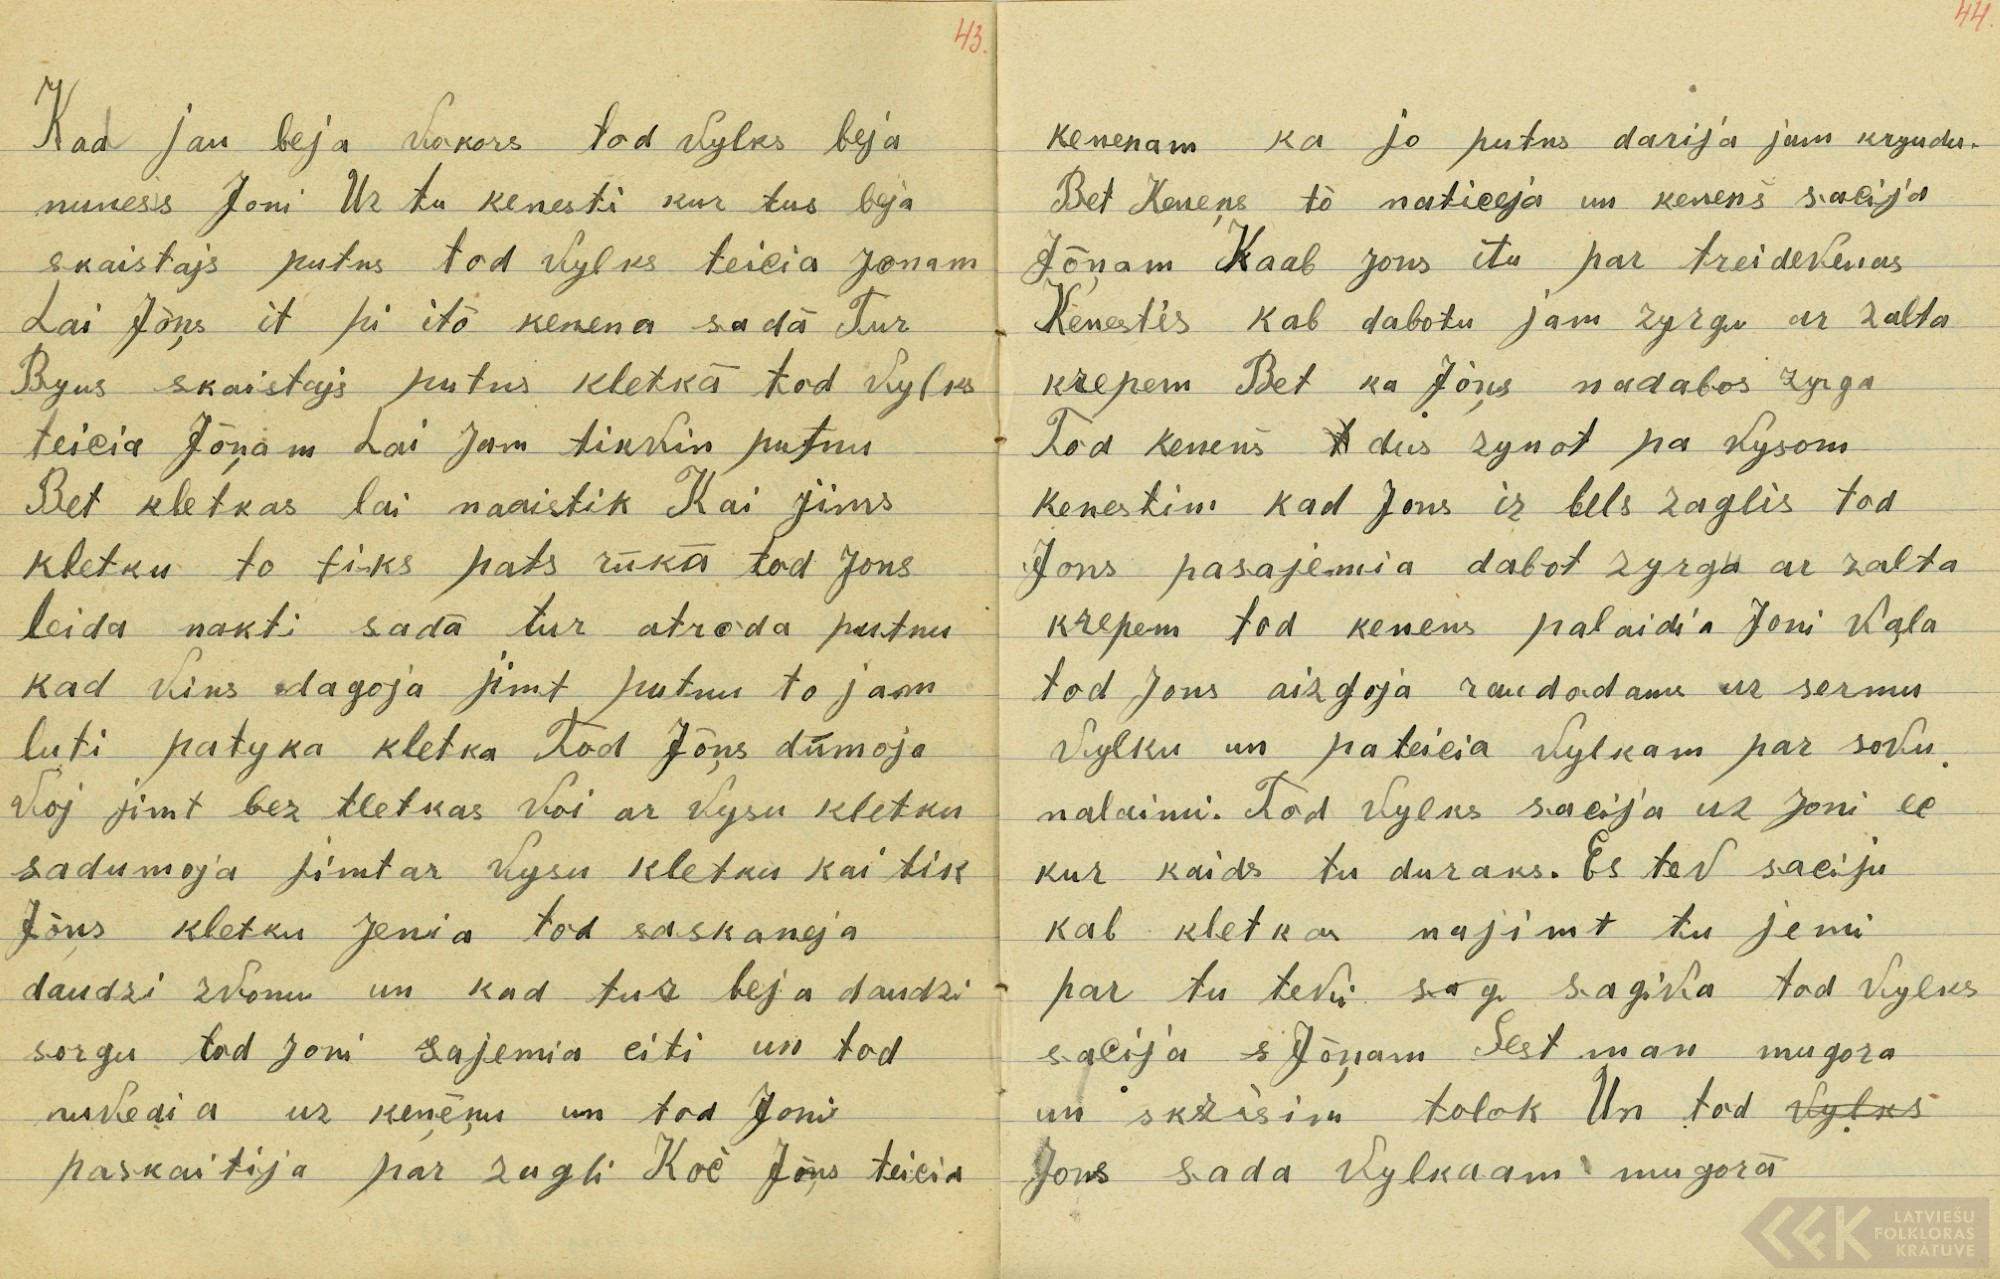 43.
Kad jau beja vokors tod vylks beja
nunesis Joni Uz tu kenesti kur tus beja
skaistajs putns tod vylks teicia Jonam
Lai Jōņs it pi itō kenena sadā Tur
Byus skaistajs putns kletkā tod vylks
teicia Jōņam Lai Jam tikvin putnu
Bet kletkas lai naaistik Kai jims
kletku to tiks pats rūkā tod Jons
leida nakti sadā tur atroda putnu
kad vins dagoja jimt putnu to jam
luti patyka kletka Tod Jōņs dūmoja
voj jimt bez kletkas voi ar vysu kletku
sadumoja jimt ar vysu kletku kai tik
Jōņs kletku Jemia tod saskaneja
daudzi zvonu un kad tuz beja daudzi
sorgu tod Joni sajemia citi un tod
nuvedia uz keņēņu un tod Joni
paskaitija par zagli Koč Jōņs teicia
44.
kenenam ka jo putns darija jam krgudu.
Bet Keneņs tō naticeja un kenenš sacija
Jōņam Kaab Jons itu par treidevenas
Kenestēs kab dabotu jam zyrgu ar zalta
krepem Bet ka Jōņs nadabos zyrga
Tod kenenš dus zynot pa vysom
kenestim kad Jons iz bels zaglis tod
Jons pasajemia dabot zyrgu ar zalta
krepem tod kenens palaidia Joni vala
tod Jons aizgoja raudodams uz sermu
vylku un pateicia vylkam par sovu
nalaimi. Tod vylks sacija uz Joni ec
kur kaids tu duraks. Es tev saciju
kab kletkas najimt tu jemi
par tu tevi sag sagiva tod vylks
sacija s Jōņam Sest man mugora
un skrisim tolok Un tod vylks
Jons sada vylkaam mugorā
LATVIEŠU
FOLKLORAS
KRĀTUVE